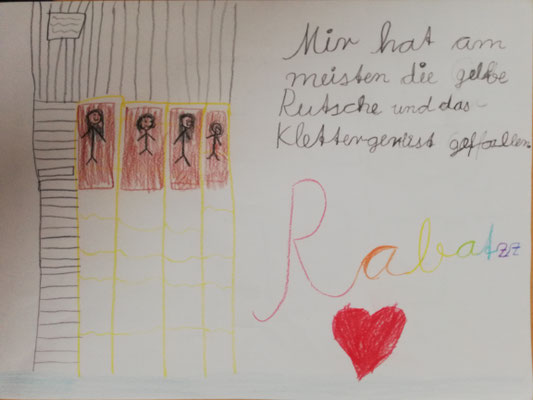 Mir hat am
meisten die gelbe
Rutsche und das
Klettergerüst gefallen.
Rabatzz